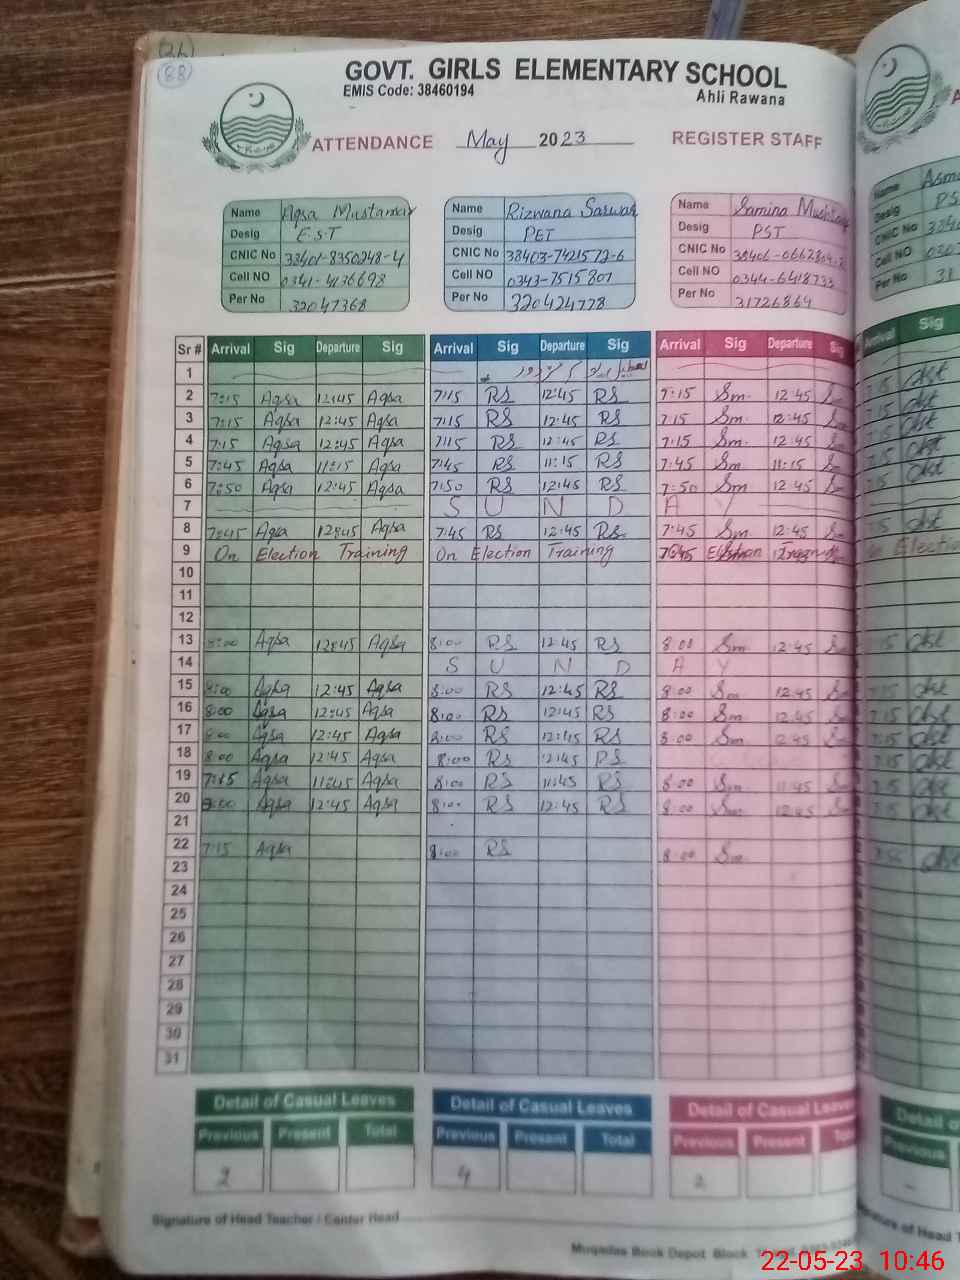 (26)
(88)
GOVT. GIRLS ELEMENTARY SCHOOL
EMIS Code: 38460194
Ahli Rawana
ATTENDANCE May 2023 REGISTER STAFF
Name Aqsa Mustamar Name Rizwana Sarwar Name Samina Name Asm
Desig E.S.T Desig PET Desig PST PS
CNIC No 38401-8350248-4 CNIC No 38403-7421572-6 CNIC No CNIC No
Cell NO 0341-4136698 Cell NO 0343-7515807 Cell NO 0344-6418733 Cell NO
Per No 32047368 Per No 320424778 Per No 31726864 Per No
Sr # Arrival Sig Departure Sig Arrival Sig Departure Sig Arrival Sig Departure Sig Arrival Sig
1
2 7:15 Aqsa 12:45 Aqsa 7:15 RS 12:45 RS 7:15 Sm 12:45
3 7:15 Aqsa 12:45 Aqsa 7:15 RS 12:45 RS 7:15 Sm 12:45
4 7:15 Aqsa 12:45 Aqsa 7:15 RS 12:45 RS 7:15 Sm 12:45
5 7:45 Aqsa 11:15 Aqsa 7:45 RS 11:15 RS 7:45 Sm 11:15
6 7:50 Aqsa 12:45 Aqsa 7:50 RS 12:45 RS 7:50 Sm 12:45
7 S U N D A Y
8 7:45 Aqsa 12:45 Aqsa 7:45 RS 12:45 RS 7:45 Sm 12:45
9 On Election Training On Election Training On Election Training Election
10
11
12
13 8:00 Aqsa 12:45 Aqsa 8:00 RS 12:45 RS 8:00 Sm 12:45
14 S U N D A Y
15 8:00 Aqsa 12:45 Aqsa 8:00 RS 12:45 RS 8:00 Sm 12:45
16 8:00 Aqsa 12:45 Aqsa 8:00 RS 12:45 RS 8:00 Sm 12:45
17 8:00 Aqsa 12:45 Aqsa 8:00 RS 12:45 RS 8:00 Sm 12:45
18 8:00 Aqsa 12:45 Aqsa 8:00 RS 12:45 RS
19 Aqsa 11:45 Aqsa 8:00 RS 11:45 RS 8:00 Sm 11:45
20 8:00 Aqsa 12:45 Aqsa 8:00 RS 12:45 RS 8:00 Sm 12:45
21
22 7:15 Aqsa 8:00 RS 8:00 Sm
23
24
25
26
27
28
29
30
31
Detail of Casual Leaves Detail of Casual Leaves Detail of Casual Leaves Detail
Previous Present Total Previous Present Total Previous Present Previous
2 4 2
Signature of Head Teacher / Center Head
Muqadas Book Depot Block
22-05-23 10:46